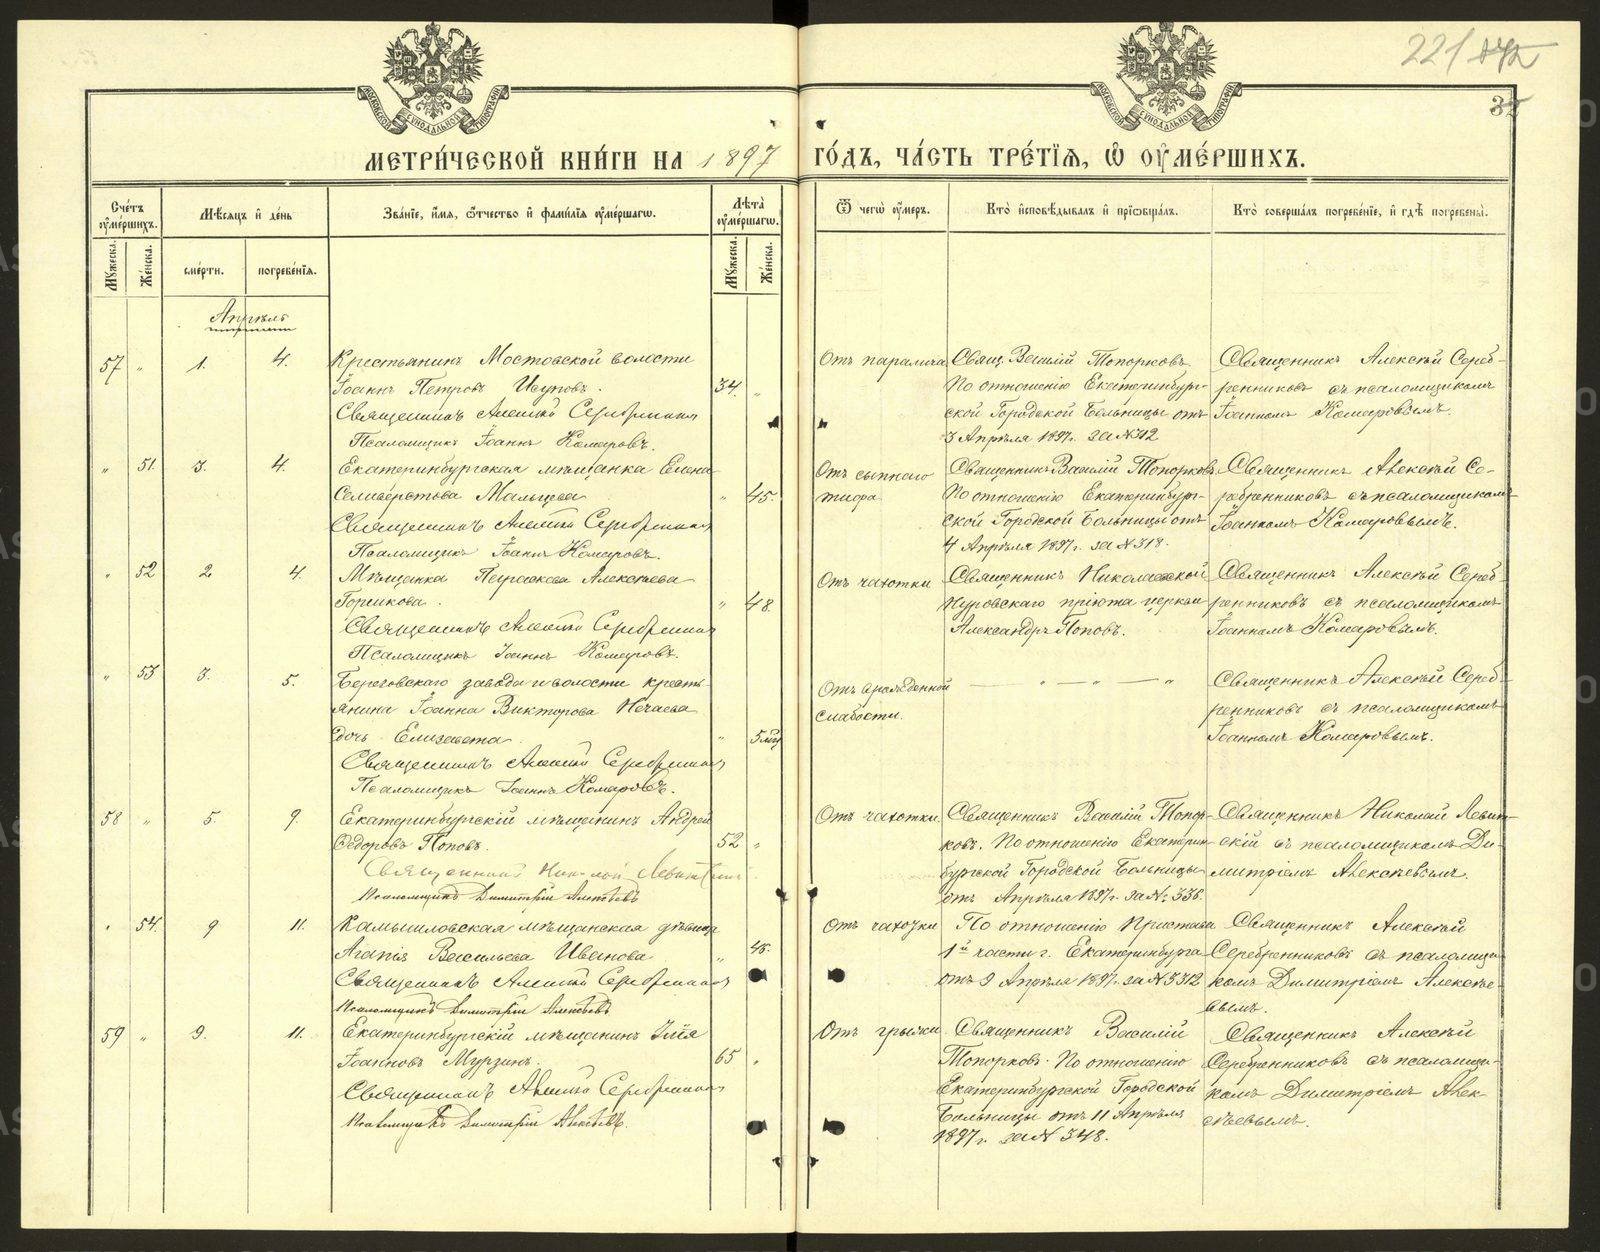 221
МОСКОВСКОЙ СѴНОДАЛЬНОЙ ТИПОГРАФІИ
МОСКОВСКОЙ СѴНОДАЛЬНОЙ ТИПОГРАФІИ
МЕТРИ́ЧЕСКОЙ КНИ́ГИ НА 1897 ГО́ДЪ, ЧА́СТЬ ТРЕ́ТІѦ, Ѿ ОУМЕ́РШИХЪ.
Сче́тъ оуме́ршихъ.
Мѣ́сяцъ и де́нь
Зва́нїе, и́мя, ѻ́тчество и фами́лїя оуме́ршагѡ.
Лѣта̀ оуме́ршагѡ.
Ѿ чегѡ̀ оу́меръ.
Кто̀ исповѣ́дывалъ и прїѡбща́лъ.
Кто̀ соверша́лъ погребе́нїе, и гдѣ̀ погребены̀.
Мꙋ́жеска.
Же́нска.
сме́рти.
погребе́нїя.
Мꙋ́жеска.
Же́нска.
Апрѣль
57 " 1. 4.
Крестьянинъ Мостовской волости
Іоаннъ Петровъ Исуповъ.
34. "
Священникъ Алексій Серебренниковъ
Псаломщикъ Іоаннъ Комаровъ.
Отъ паралича
Свящ. Василій Топорковъ.
По отношенію Екатеринбург-
ской Городской Больницы отъ
3 Апрѣля 1897 г. за № 312
Священникъ Алексѣй Сереб-
ренниковъ съ псаломщикомъ
Іоанномъ Комаровымъ.
" 51. 3. 4.
Екатеринбургская мѣщанка Елена
Селиверстова Мальцева
" 45.
Священникъ Алексій Серебренниковъ
Псаломщикъ Іоаннъ Комаровъ.
Отъ сыпного
тифа
Священникъ Василій Топорковъ.
По отношенію Екатеринбург-
ской Городской Больницы отъ
4 Апрѣля 1897 г. за № 318.
Священникъ Алексѣй Се-
ребренниковъ съ псаломщикомъ
Іоанномъ Комаровымъ.
" 52 2. 4.
Мѣщанка Параскева Алексѣева
" 48.
Священникъ Алексій Серебренниковъ
Псаломщикъ Іоаннъ Комаровъ.
Отъ чахотки
Священникъ Николаевской
Нуровскаго пріюта церкви
Александръ Поповъ.
Священникъ Алексѣй Сереб-
ренниковъ съ псаломщикомъ
Іоанномъ Комаровымъ.
" 53 3. 5.
Березовскаго завода и волости кресть-
янина Іоанна Викторова Нечаева
дочь Елизавета
" 5 мѣс
Священникъ Алексій Серебренниковъ
Псаломщикъ Іоаннъ Комаровъ.
Отъ врожденной
слабости.
— " — " — "
Священникъ Алексѣй Сереб-
ренниковъ съ псаломщикомъ
Іоанномъ Комаровымъ.
58 " 5. 9.
Екатеринбургскій мѣщанинъ Андрей
Ѳедоровъ Поповъ.
52 "
Священникъ Николай Левитскій
Псаломщикъ Димитрій Алексѣевъ
Отъ чахотки.
Священникъ Василій Топор-
ковъ. По отношенію Екатерин-
бургской Городской Больницы
отъ Апрѣля 1897 г. за №: 336.
Священникъ Николай Левит-
скій съ псаломщикомъ Ди-
митріемъ Алексѣевымъ.
" 54. 9 11.
Камышловская мѣщанская дѣвица
Агапія Васильева Иванова
" 45.
Священникъ Алексій Серебренниковъ
Псаломщикъ Димитрій Алексѣевъ
Отъ чахотки
По отношенію Пристава
1й части г. Екатеринбурга
отъ 9 Апрѣля 1897 г. за № 3312
Священникъ Алексѣй
Серебренниковъ съ псаломщи-
комъ Димитріемъ Алексѣе-
вымъ.
59 " 9. 11.
Екатеринбургскій мѣщанинъ Илія
Іоанновъ Мурзинъ.
65 "
Священникъ Алексій Серебренниковъ
Псаломщикъ Димитрій Алексѣевъ.
Отъ грыжи
Священникъ Василій
Топорковъ. По отношенію
Екатеринбургской Городской
Больницы отъ 11 Апрѣля
1897 г. за № 348.
Священникъ Алексѣй
Серебренниковъ съ псаломщи-
комъ Димитріемъ Алек-
сѣевымъ.